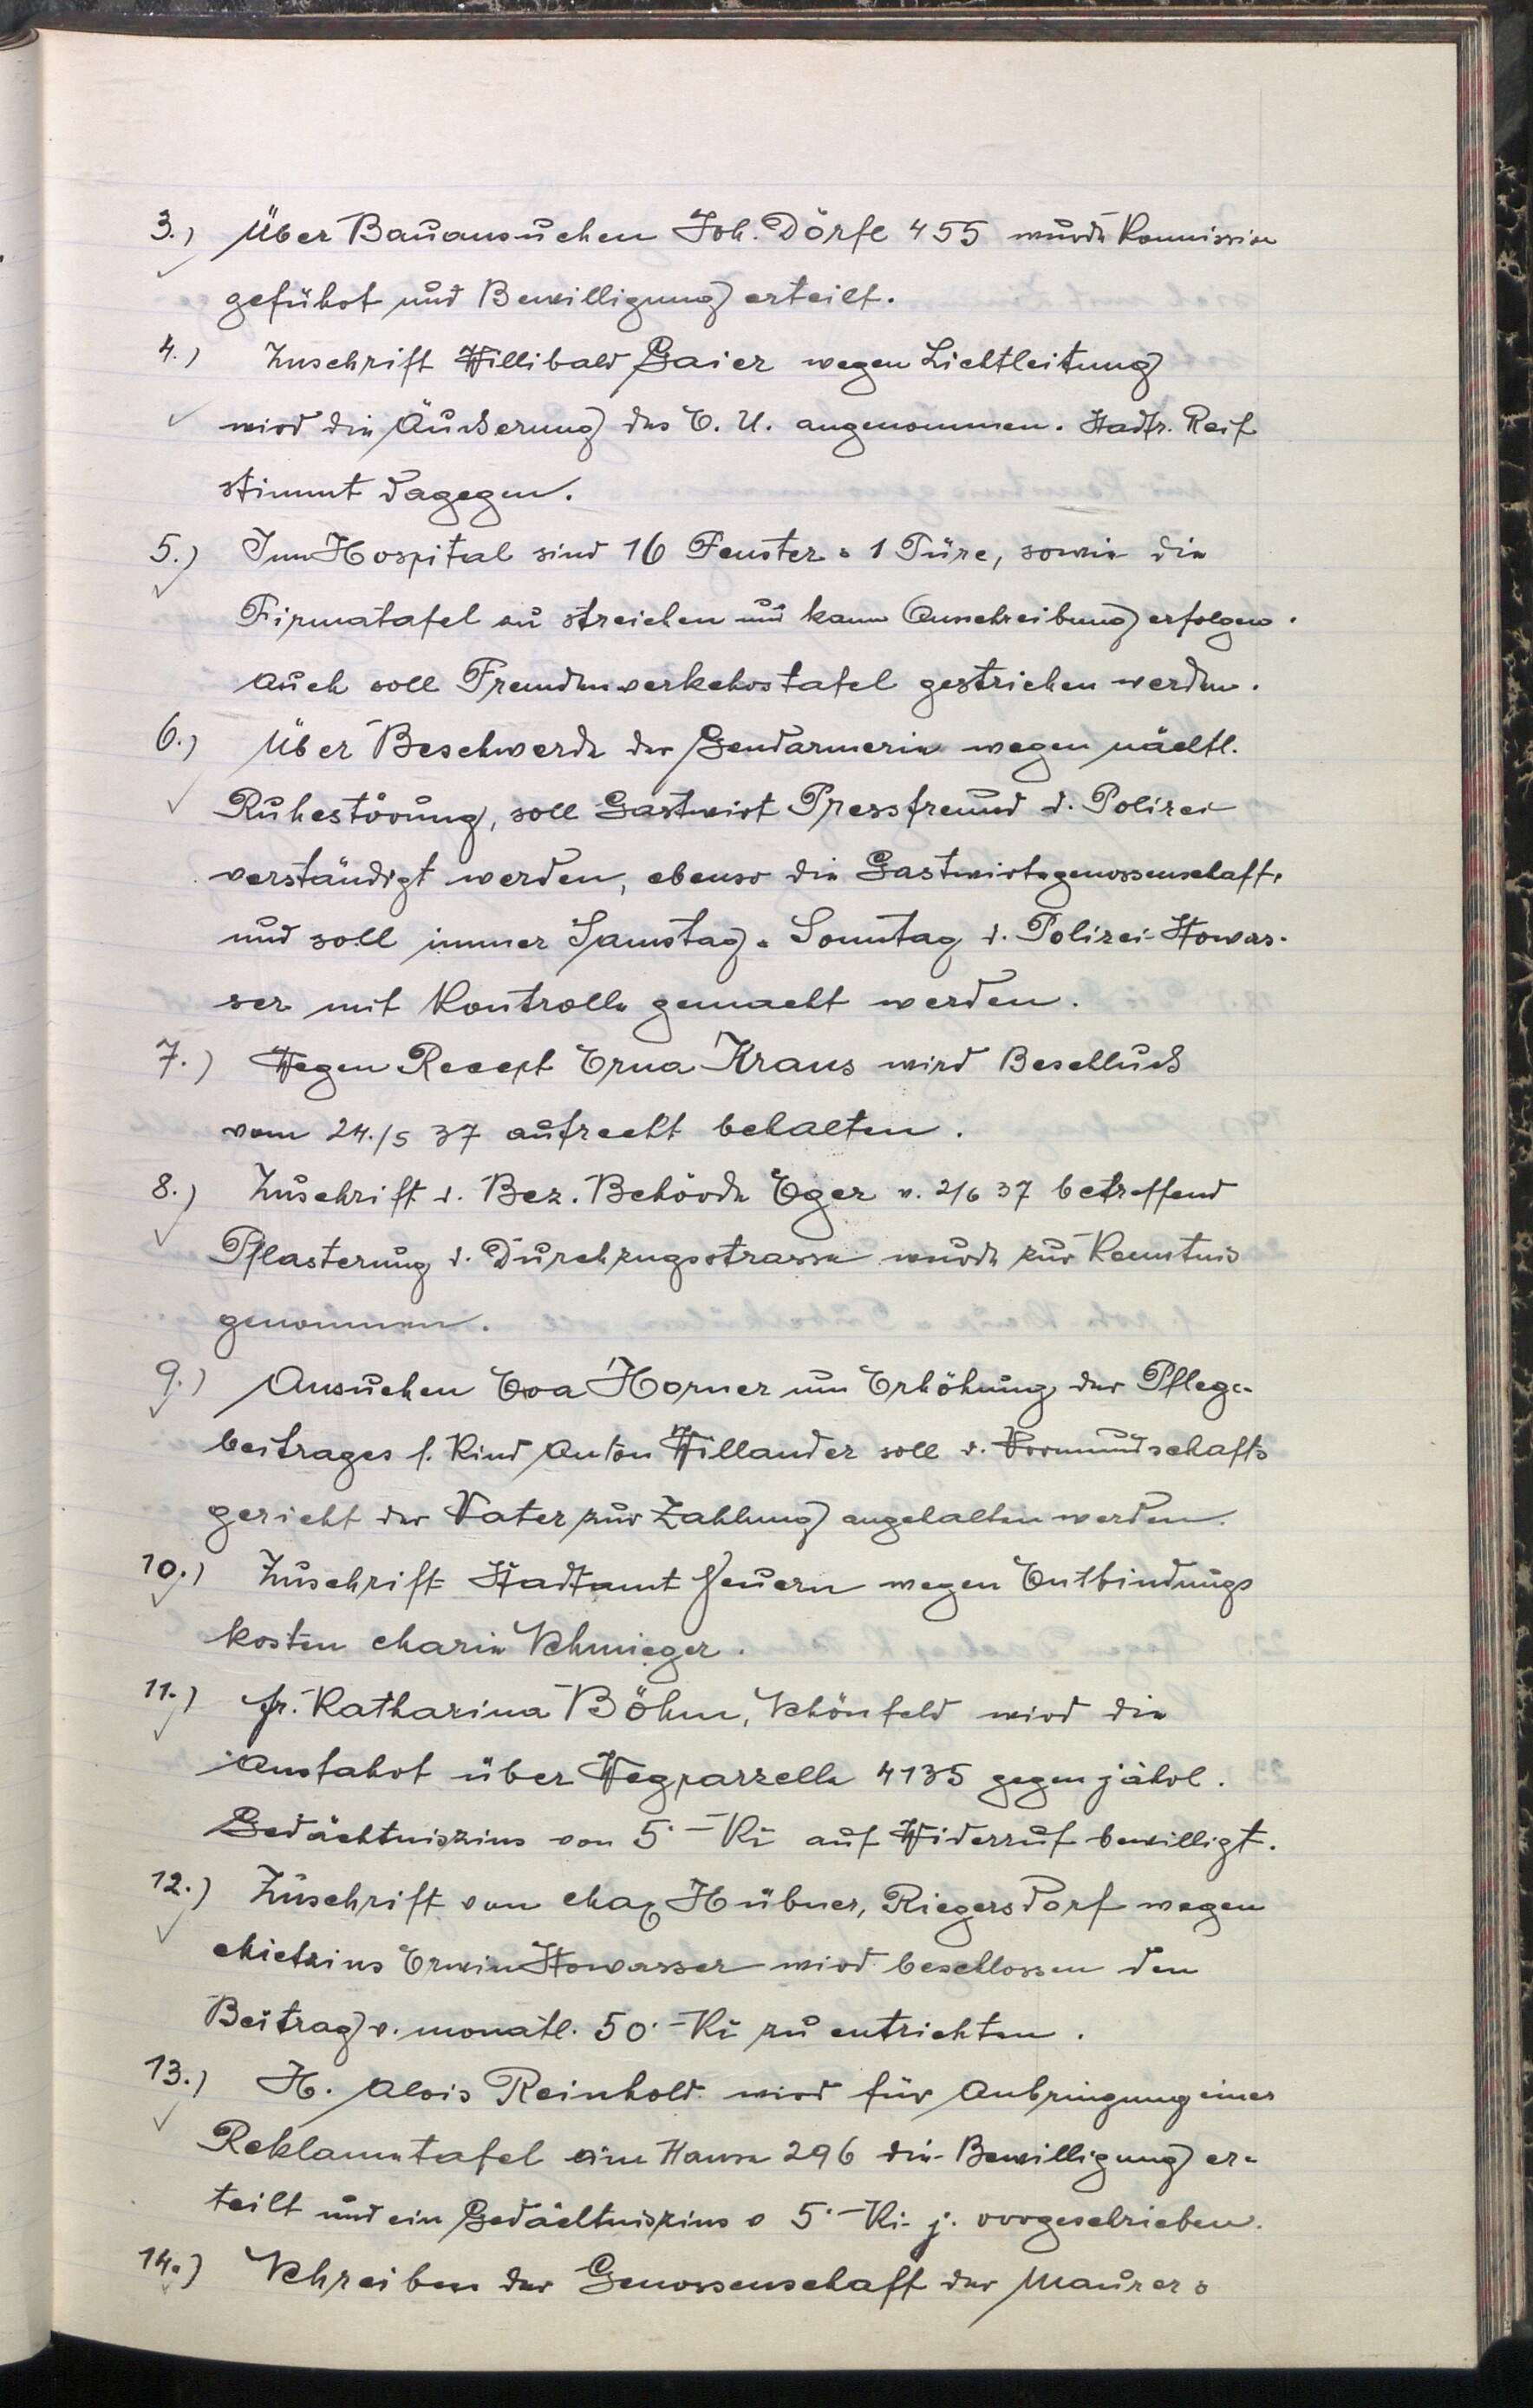 3.) Über Bauansuchen Joh. Dörfl 455 wurde Kommission
geführt und Bewilligung erteilt.
4.) Zuschrift Willibald Gaier wegen Lichtleitung
wird die Äußerung des E. U. angenommen. Stadtr. Reif
stimmt dagegen.
5.) Im Hospital sind 16 Fenster u 1 Türe, sowie die
Firmatafel zu streichen und kann Ausschreibung erfolgen.
Auch soll Fremdenverkehrstafel gestrichen werden.
6.) Über Beschwerde der Gendarmerie wegen nächtl.
Ruhestörung, soll Gastwirt Pressfreund d. Polizei
verständigt werden, ebenso die Gastwirtegenossenschaft,
und soll immer Samstag u Sonntag d. Polizei Howas-
ser mit Kontrolle gemacht werden.
7.) Wegen Recept Erna Kraus wird Beschluß
vom 24./5 37 aufrecht behalten.
8.) Zuschrift d. Bez. Behörde Eger v. 2/6 37 betreffend
Pflasterung d. Durchzugsstrasse wurde zur Kenntnis
genommen.
9.) Ansuchen Eva Horner um Erhöhung des Pflege-
beitrages f. Kind Anton Willander soll d. Vormundschafts
gericht der Vater zur Zahlung angehalten werden.
10.) Zuschrift Stadtamt wegen Entbindungs
kosten Marie Schmieger.
11.) Fr. Katharina Böhm, Schönfeld wird die
Ausfahrt über Wegparzelle 4135 gegen jährl.
Gedächtniszins von 5.- Kč auf Widerruf bewilligt.
12.) Zuschrift von Max Hübner, Riegersdorf wegen
Mietzins Erwin Howasser wird beschlossen den
Beitrag v. monatl. 50.- Kč zu entrichten.
13.) H. Alois Reinhold wird für Anbringung einer
Reklametafel am Hause 296 die Bewilligung er-
teilt und ein Gedächtniszins v 5.- Kč j. vorgeschrieben.
14.) Schreiben der Genossenschaft der Maurer u